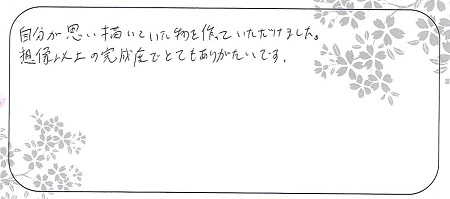 自分が思い描いていた物を作っていただけました。
想像以上の完成度でとてもありがたいです。